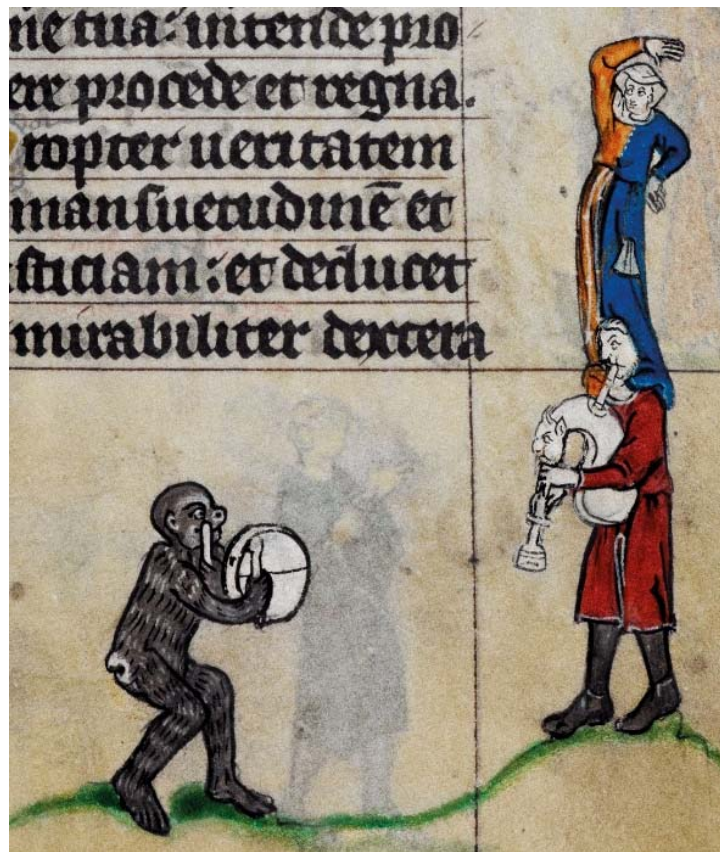 ne tua: intende pro
ere procede et regna.
ropter ueritatem
mansuetudinē et
sticiam: et deducet
mirabiliter dextera